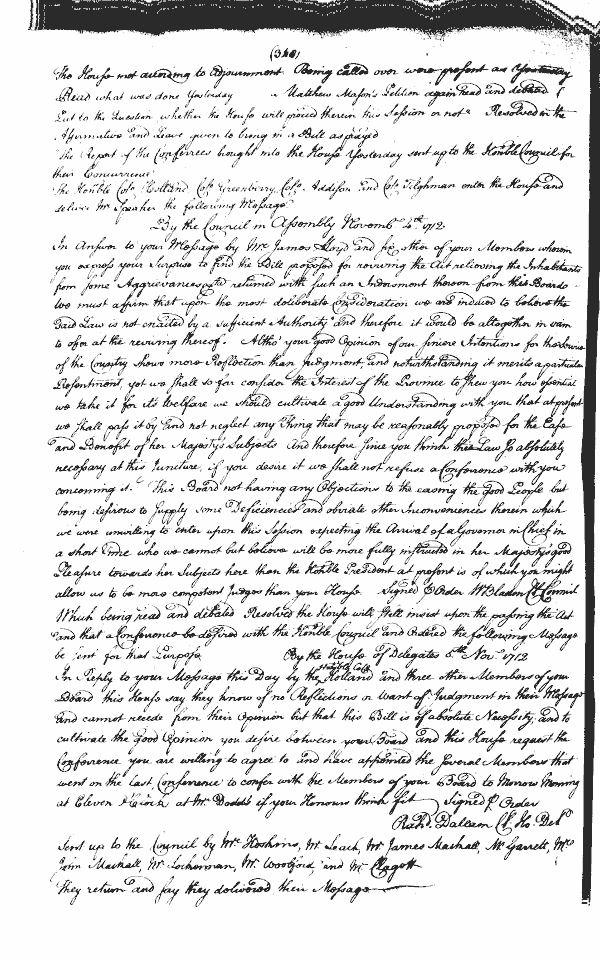 (348)
The House met according to Adjournment. Being called over were present as Yesterday
Read what was done Yesterday Matthew Mason's Petition again read and debated
Put to the Question whether the House will proceed therein this Session or not Resolved in the
Affirmative and Leave given to bring in a Bill as prayed
The Report of the Conferrees brought into the House Yesterday sent up to the Honble Council for
their Concurrence
The Honble Colo Holland Colo Greenberry, Colo Addison and Colo Tilghman enter the House and
deliver Mr Speaker the following Message
By the Council in Assembly Novembr 5th 1712
In Answer to your Message by Mr James Lloyd and six other of your Members wherein
you express your Surprise to find the Bill proposed for reviving the Act relieving the Inhabitants
from some Aggrievances returned with such an Indorsment thereon from this Board
We must affirm that upon the most deliberate Consideration we are induced to believe the
said Law is not enacted by a sufficient Authority and therefore it would be altogether in vain
to offer at the reviving thereof. Altho' your good Opinion of our sincere Intentions for the Service
of the Country shows more Reflection than Judgment, and notwithstanding it merits a particular
Resentment, yet we shall so far consider the Interest of the Province to shew you how essential
we take it for its Welfare we should cultivate a good Understanding with you that at present
we shall pass it by and not neglect any Thing that may be reasonably proposed for the Ease
and Benefit of her Majestys Subjects And therefore since you think this Law so absolutely
necessary at this Juncture, if you desire it we shall not refuse a Conference with you
concerning it. This Board not having any Objections to the easing the good People but
being desirous to supply some Deficiencies and obviate other Inconveniences therein which
we were unwilling to enter upon this Session expecting the Arrival of a Governor in Chief in
a short Time who we cannot but believe will be more fully instructed in her Majestys good
Pleasure towards her Subjects here than the Honble President at present is of which you might
allow us to be more competent Judges than your House. Signed p Order W Bladen Cl Council
Which being read and debated Resolved the House will still insist upon the passing the Act
and that a Conference be desired with the Honble Council and Ordered the following Message
be sent for that Purpose
By the House of Delegates 5th Novr 1712
In Reply to your Message this Day by the Honble Colo Holland and three other Members of your
Board this House say they know of no Reflections or Want of Judgment in their Message
and cannot recede from their Opinion but that this Bill is of absolute Necessity, and to
cultivate the good Opinion you desire between your Board and this House request the
Conference you are willing to agree to and have appointed the several Members that
went on the last Conference to confer with the Members of your Board to Morrow Morning
at Eleven o'Clock at Mr Dodds if your Honours think fit Signed p Order
Richd Dallam Cl Ho. Del
Sent up to the Council by Mr Hoskins, Mr Leach, Mr James Mackall, Mr Garrett, Mr
John Mackall, Mr Lockerman, Mr Woolford, and Mr Clagett
They return and say they delivered their Message